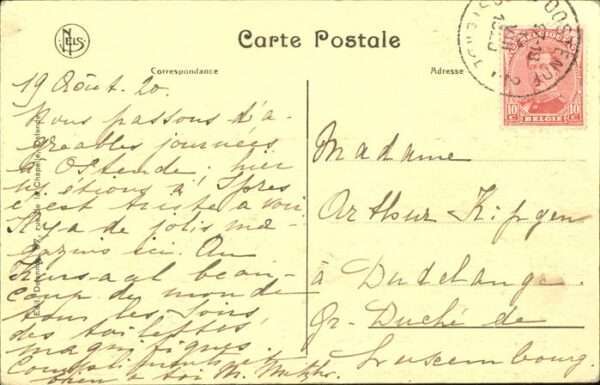 NELS
Carte Postale
Correspondance
Adresse
19 Août. 20.
Nous passons d'a-
gréables journées
à Ostende, hier
nous étions à Ypres
c'est triste à voir
Il y a de jolis ma-
gazins ici. Au
Kursaal beau-
coup de monde
tous les soirs,
des toilettes
magnifiques.
à toi M.
Madame
Arthur Kipgen
à Dudelange
Gr. Duché de
Luxembourg.
OOSTENDE
BELGIQUE
10 C BELGIË 10 C